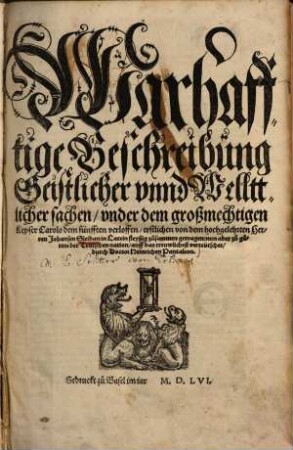 Warhaff-
tige Beschreibung
Geistlicher vnnd Welltt-
licher sachen / vnder dem großmechtigen
Keyser Carolo dem fünfften verloffen / erstlichen von dem hochgelehrten Her-
ren Johanne Sleidano in Latein fleyßig zůsammen getragen / nun aber zů gůtem der Teütschen nation / auff das trewlichest verteütschet /
durch Doctor Heinrichen Pantaleon.
Gedruckt zů Basel im iar M. D. LVI.